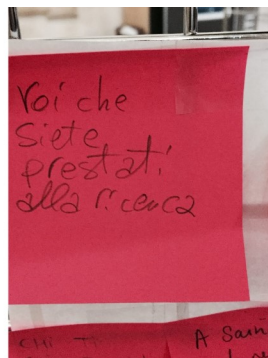 Voi che
siete
prestati
alla ricerca
CHI TI
A Sain